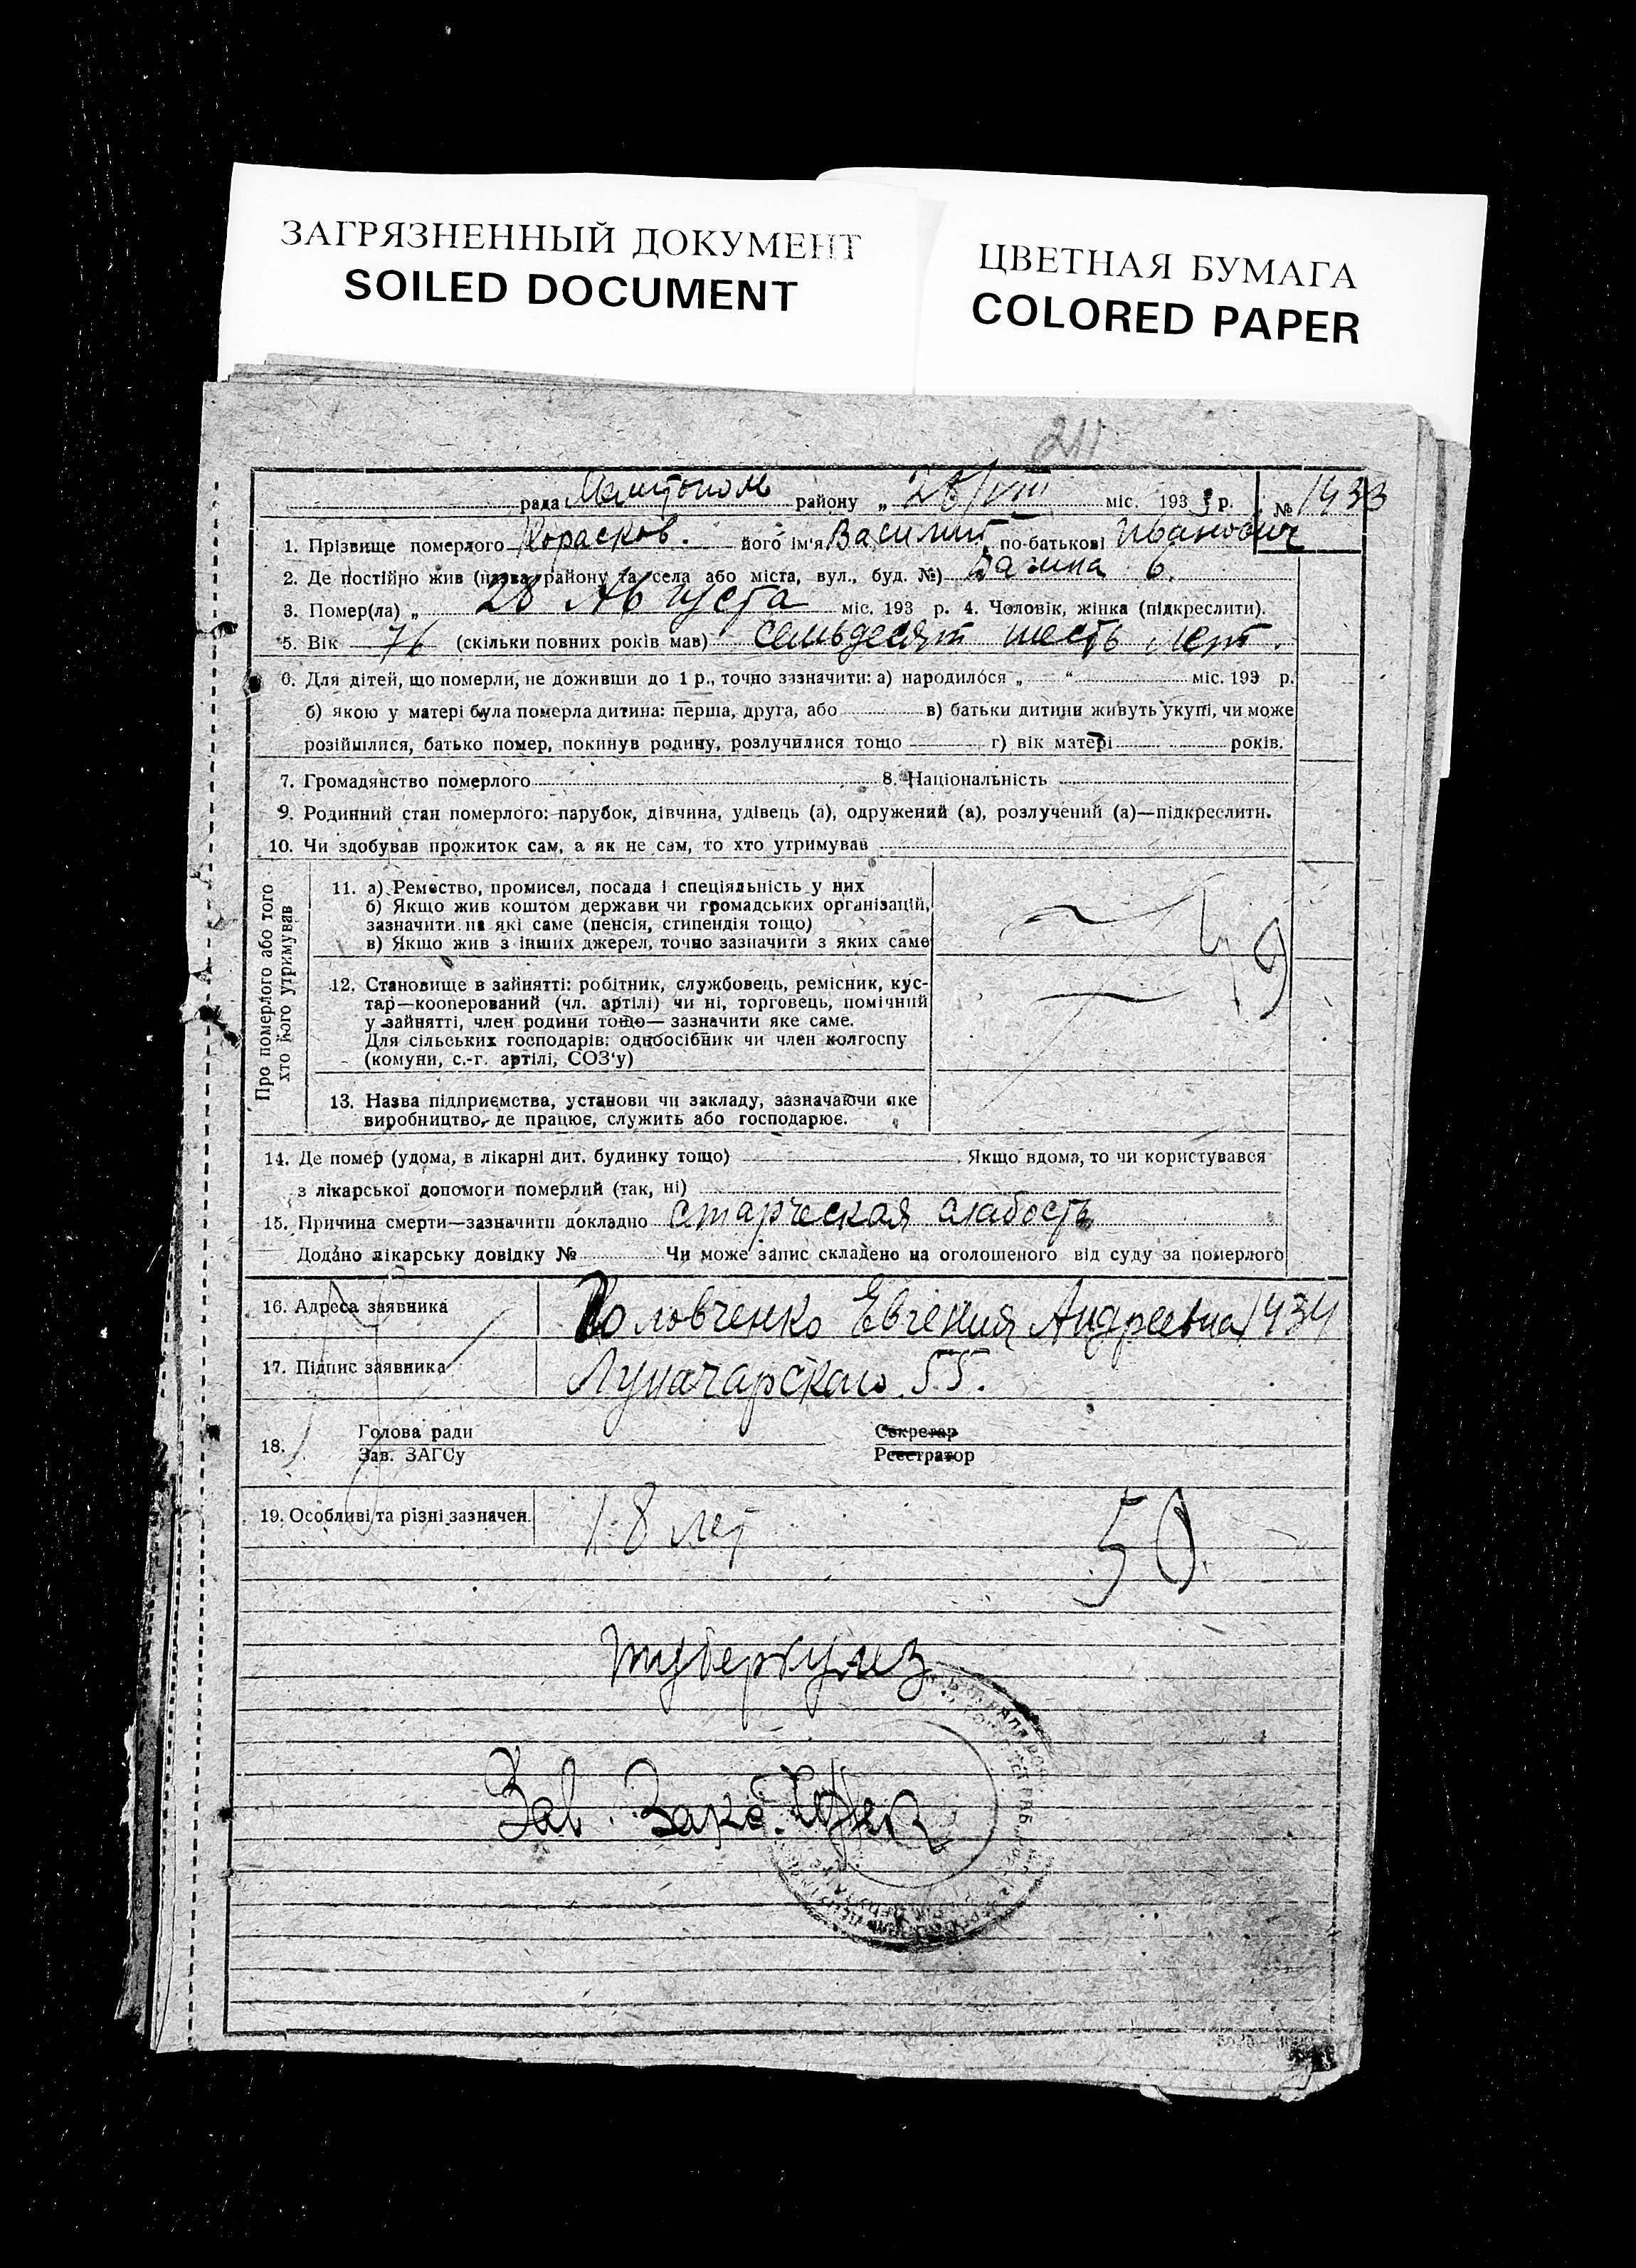 ЗАГРЯЗНЕННЫЙ ДОКУМЕНТ
SOILED DOCUMENT
ЦВЕТНАЯ БУМАГА
COLORED PAPER
211
рада Мелитополь району „ 28/VIII міс. 1933 р. № 1433
1. Прізвище померлого Корасков. його ім'я Василий по-батькові Иванович
2. Де постійно жив (назва району та села або міста, вул., буд. №) 6.
3. Помер(ла) „ 28 Августа міс. 193 р. 4. Чоловік, жінка (підкреслити).
5. Вік 76 (скільки повних років мав) семьдесят шесть лет.
6. Для дітей, що померли, не доживши до 1 р., точно зазначити: а) народилося „ “ міс. 193 р.
б) якою у матері була померла дитина: перша, друга, або в) батьки дитини живуть укупі, чи може
розійшлися, батько помер, покинув родину, розлучилися тощо г) вік матері років.
7. Громадянство померлого 8. Національність
9. Родинний стан померлого: парубок, дівчина, удівець (а), одружений (а), розлучений (а)—підкреслити.
10. Чи здобував прожиток сам, а як не сам, то хто утримував
Про померлого або того
хто його утримував
11. а) Ремество, промисел, посада і спеціяльність у них
б) Якщо жив коштом держави чи громадських організацій,
зазначити на які саме (пенсія, стипендія тощо)
в) Якщо жив з інших джерел, точно зазначити з яких саме
49
12. Становище в зайнятті: робітник, службовець, ремісник, кус-
тар—кооперований (чл. артілі) чи ні, торговець, помічний
у зайнятті, член родини тощо— зазначити яке саме.
Для сільських господарів: одноосібник чи член колгоспу
(комуни, с.-г. артілі, СОЗ'у)
13. Назва підприємства, установи чи закладу, зазначаючи яке
виробництво, де працює, служить або господарює.
14. Де помер (удома, в лікарні дит. будинку тощо) . Якщо вдома, то чи користувався
з лікарської допомоги померлий (так, ні)
15. Причина смерти—зазначити докладно старческая слабость
Додано лікарську довідку № Чи може запис складено на оголошеного від суду за померлого
16. Адреса заявника Головченко Евгения Андреевна 1434
17. Підпис заявника Луначарского 55.
18. Голова ради Секретар
Зав. ЗАГСу Реєстратор
19. Особливі та різні зазначен. 18 лет 50
туберкулез
Зав.